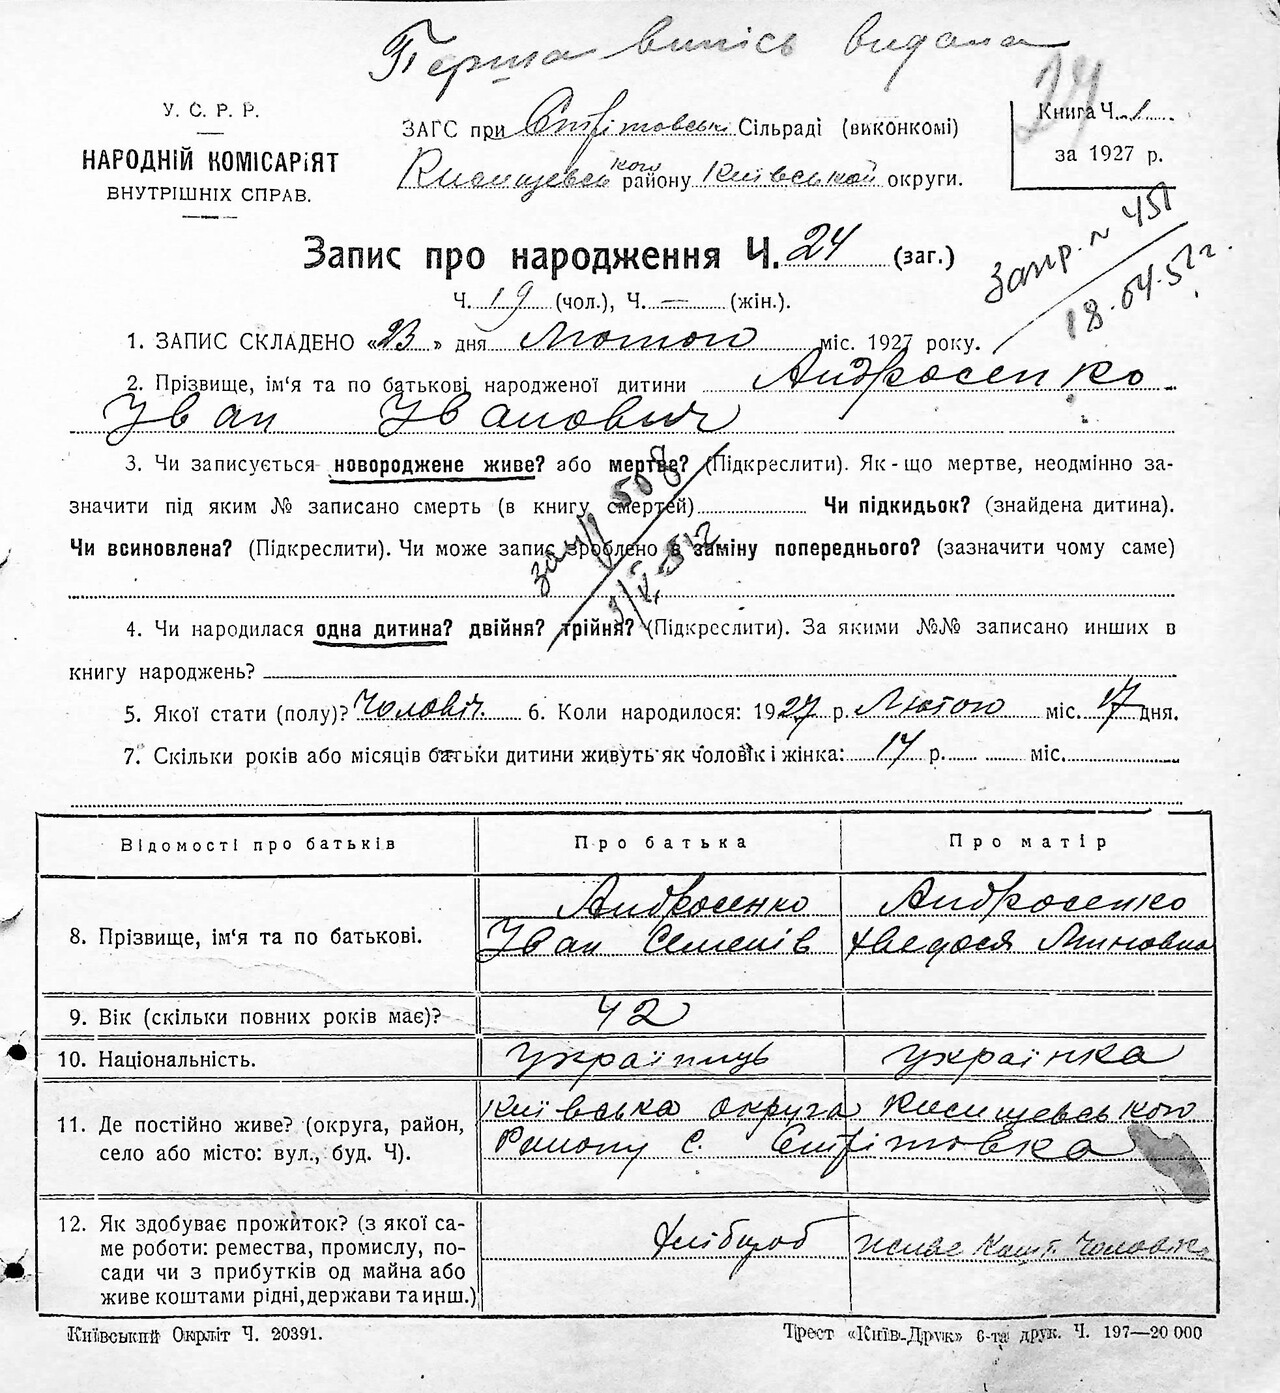 Перша випись видана
24
У. С. Р. Р.
НАРОДНІЙ КОМІСАРІЯТ
ВНУТРІШНІХ СПРАВ.
ЗАГС при Стрітовські Сільраді (виконкомі)
кого району Київської округи.
Книга Ч. 1
за 1927 р.
Запис про народження Ч. 24 (заг.)
Ч. 19 (чол.), Ч. — (жін.).
запр. № 451
18.04.51г.
1. ЗАПИС СКЛАДЕНО «23» дня Лютого міс. 1927 року.
2. Прізвище, ім'я та по батькові народженої дитини Андросенко
Іван Іванович
3. Чи записується новороджене живе? або мертве? (Підкреслити). Як-що мертве, неодмінно за-
значити під яким № записано смерть (в книгу смертей) Чи підкидьок? (знайдена дитина).
Чи всиновлена? (Підкреслити). Чи може запис зроблено в заміну попереднього? (зазначити чому саме)
508
4. Чи народилася одна дитина? двійня? трійня? (Підкреслити). За якими №№ записано инших в
книгу народжень?
5. Якої стати (полу)? Чоловіч. 6. Коли народилося: 1927 р. Лютого міс. 17 дня.
7. Скільки років або місяців батьки дитини живуть як чоловік і жінка: 17 р. міс.
Відомості про батьків Про батька Про матір
8. Прізвище, ім'я та по батькові. Андросенко Іван Семенів Андросенко Хведося Миновна
9. Вік (скільки повних років має)? 42
10. Національність. Українець Українка
11. Де постійно живе? (округа, район, село або місто: вул., буд. Ч). Київська округа Району с. Стрітовка
12. Як здобуває прожиток? (з якої са-
ме роботи: ремества, промислу, по-
сади чи з прибутків од майна або
живе коштами рідні, держави та инш.) Хлібороб Живе Кошт. Чоловіка
Київський Окрліт Ч. 20391.
Трест «Київ-Друк» 6-та друк. Ч. 197—20 000